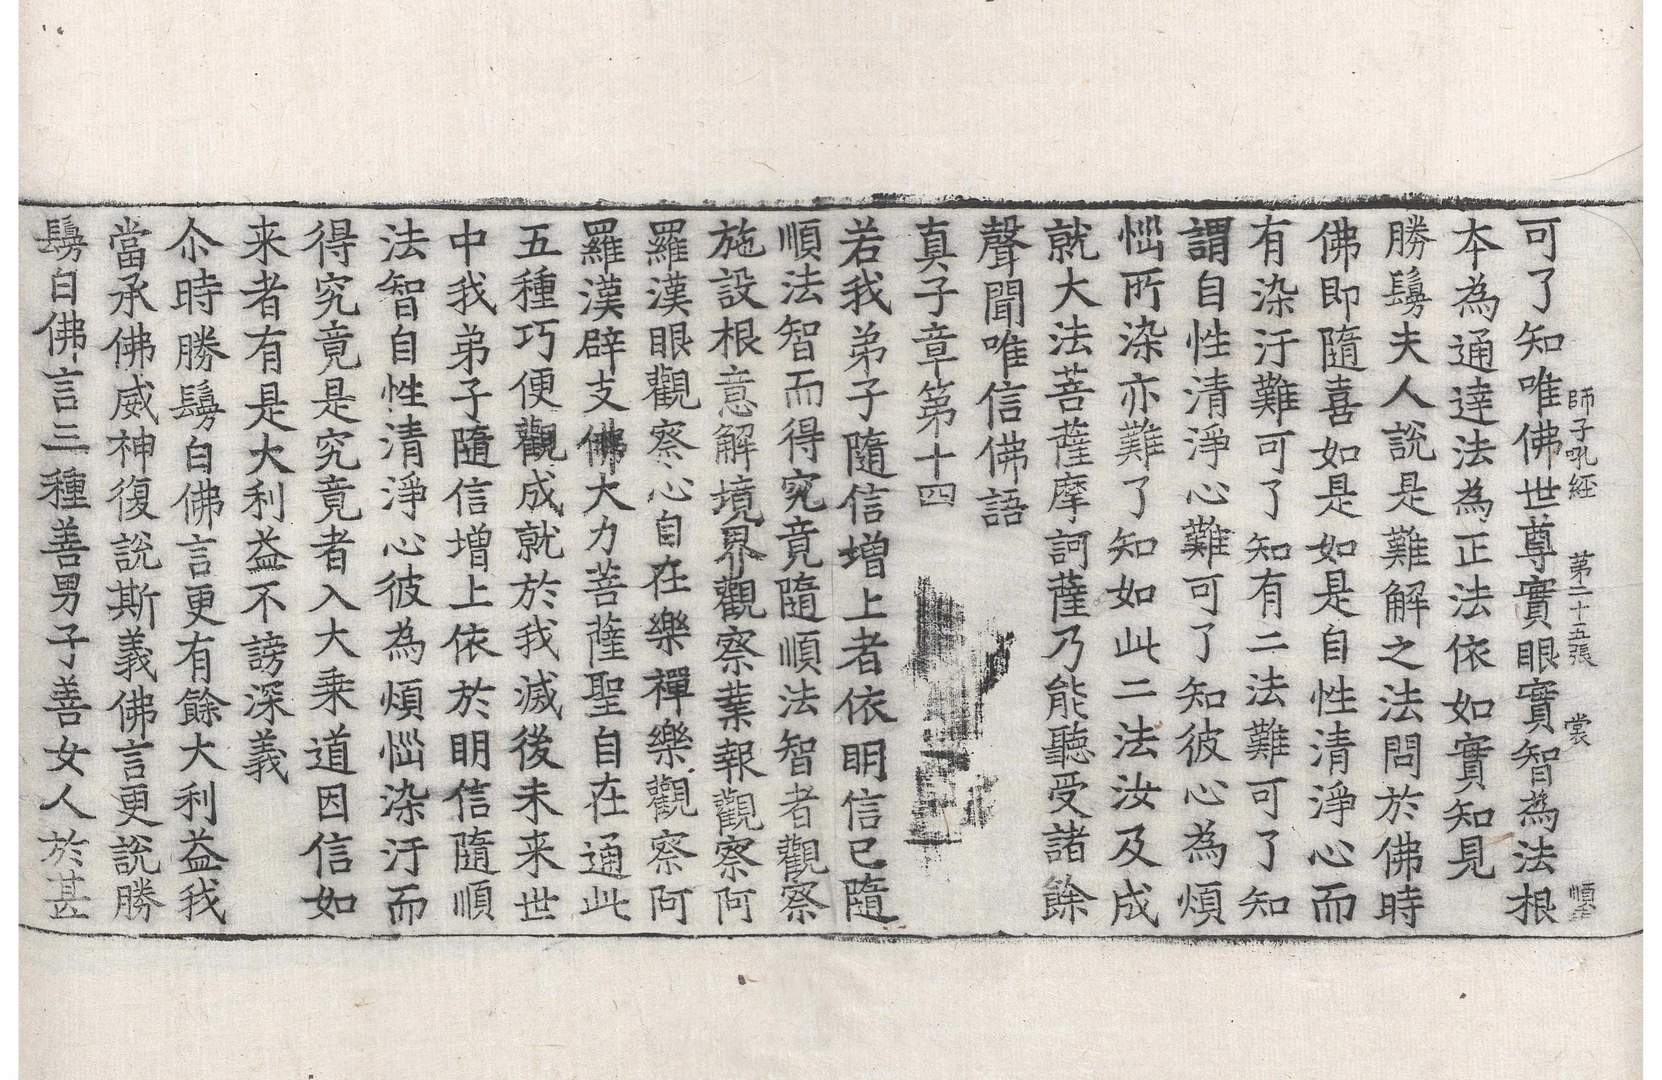 師子吼經　第二十五張　裳
可了知唯佛世尊實眼實智為法根
本為通達法為正法依如實知見
勝鬘夫人說是難解之法問於佛時
佛即隨喜如是如是自性清淨心而
有染汙難可了知有二法難可了知
謂自性清淨心難可了知彼心為煩
惱所染亦難了知如此二法汝及成
就大法菩薩摩訶薩乃能聽受諸餘
聲聞唯信佛語
真子章第十四
若我弟子隨信增上者依明信已隨
順法智而得究竟隨順法智者觀察
施設根意解境界觀察業報觀察阿
羅漢眼觀察心自在樂禪樂觀察阿
羅漢辟支佛大力菩薩聖自在通此
五種巧便觀成就於我滅後未来世
中我弟子隨信增上依於明信隨順
法智自性清淨心彼為煩惱染汙而
得究竟是究竟者入大乗道因信如
来者有是大利益不謗深義
尒時勝鬘白佛言更有餘大利益我
當承佛威神復說斯義佛言更說勝
鬘白佛言三種善男子善女人於甚